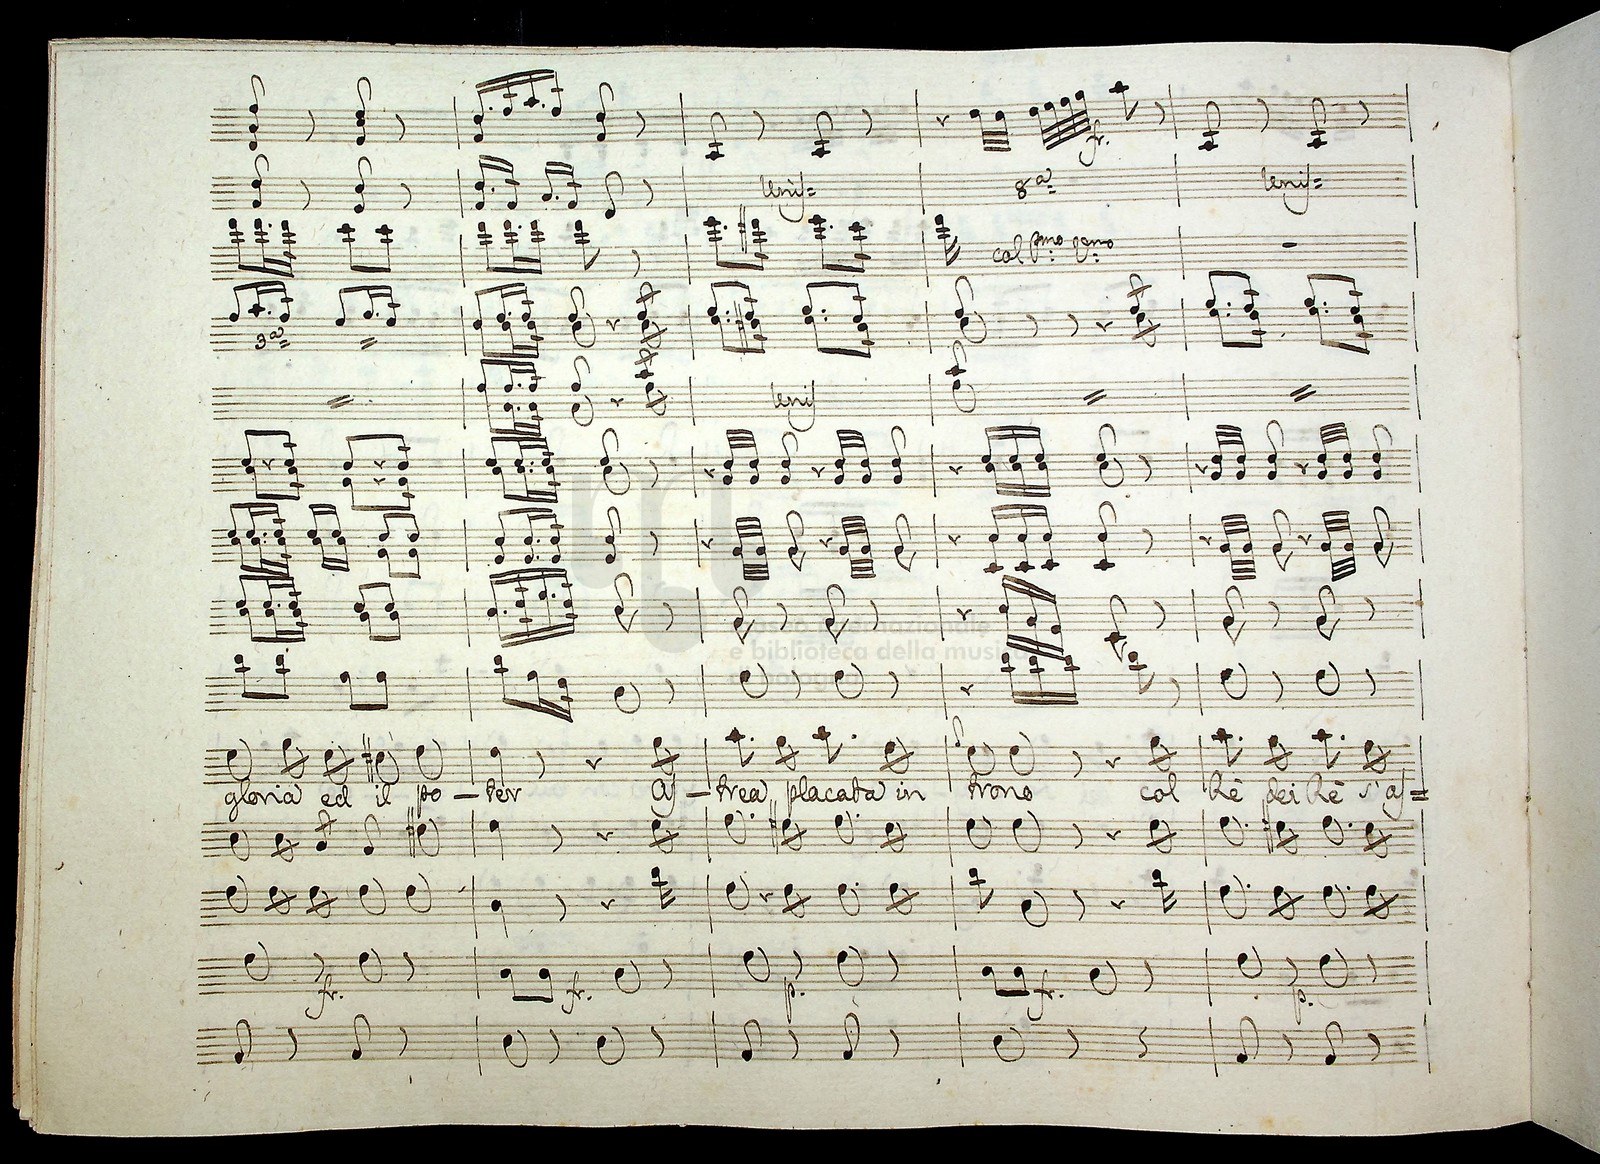 fr.
Unis= 8ª= Unis=
col Pmo: Vono:
3ª=
Unis
gloria ed il po-ter As-trea placata in trono col Rè dei Rè s'as=
fr. fr. p. fr. p.
museo internazionale
e biblioteca della musica
di bologna